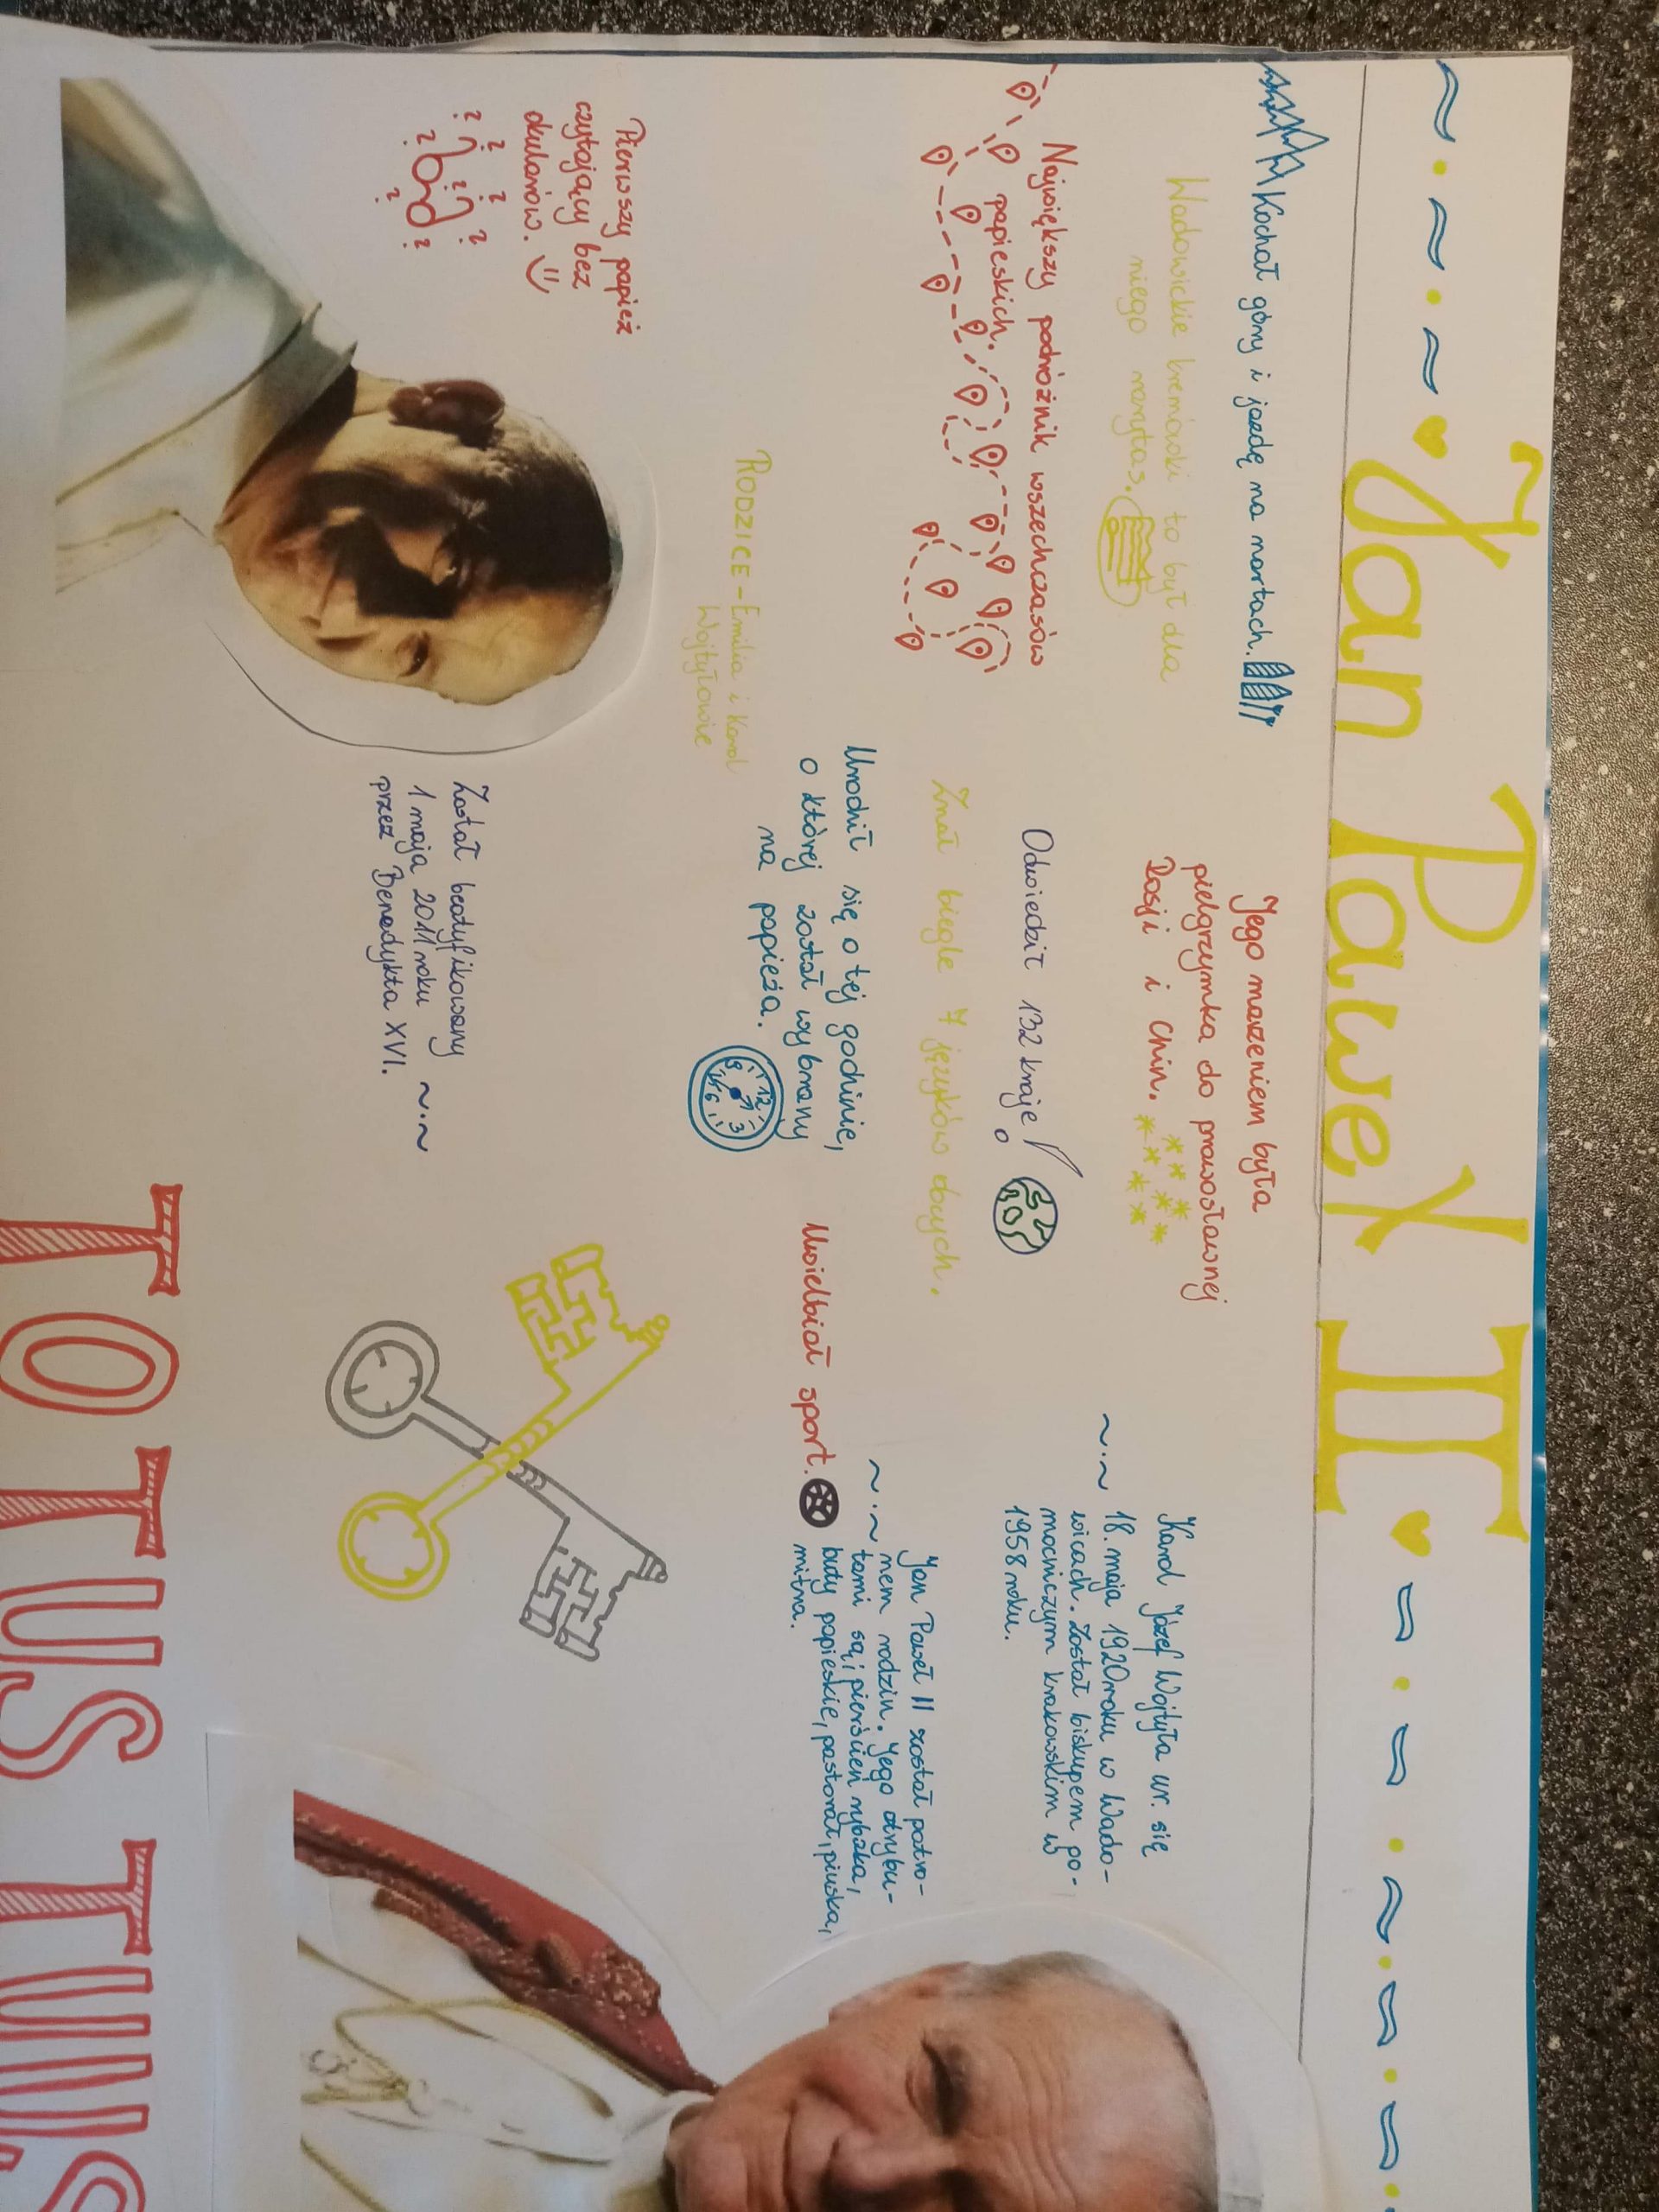 Jan Paweł II
Kochał góry i jazdę na nartach.
Wadowickie kremówki to był dla
niego rarytas.
Największy podróżnik wszechczasów
papieskich.
RODZICE - Emilia i Karol
Wojtyłowie
Pierwszy papież
czytający bez
okularów.
? ? ? ? ? ? ? ? ?
Jego marzeniem była
pielgrzymka do prawosławnej
Rosji i Chin.
Odwiedził 132 kraje!
Znał biegle 7 języków obcych.
Urodził się o tej godzinie,
o której został wybrany
na papieża.
12
3
6
9
Został beatyfikowany
1 maja 2011 roku
przez Benedykta XVI.
Uwielbiał sport.
Karol Józef Wojtyła ur. się
18. maja 1920 roku w Wado-
wicach. Został biskupem po-
mocniczym krakowskim w
1958 roku.
Jan Paweł II został patro-
nem rodzin. Jego atrybu-
tami są; pierścień rybaka,
buty papieskie, pastorał, piuska,
mitra.
TOTUS TUUS